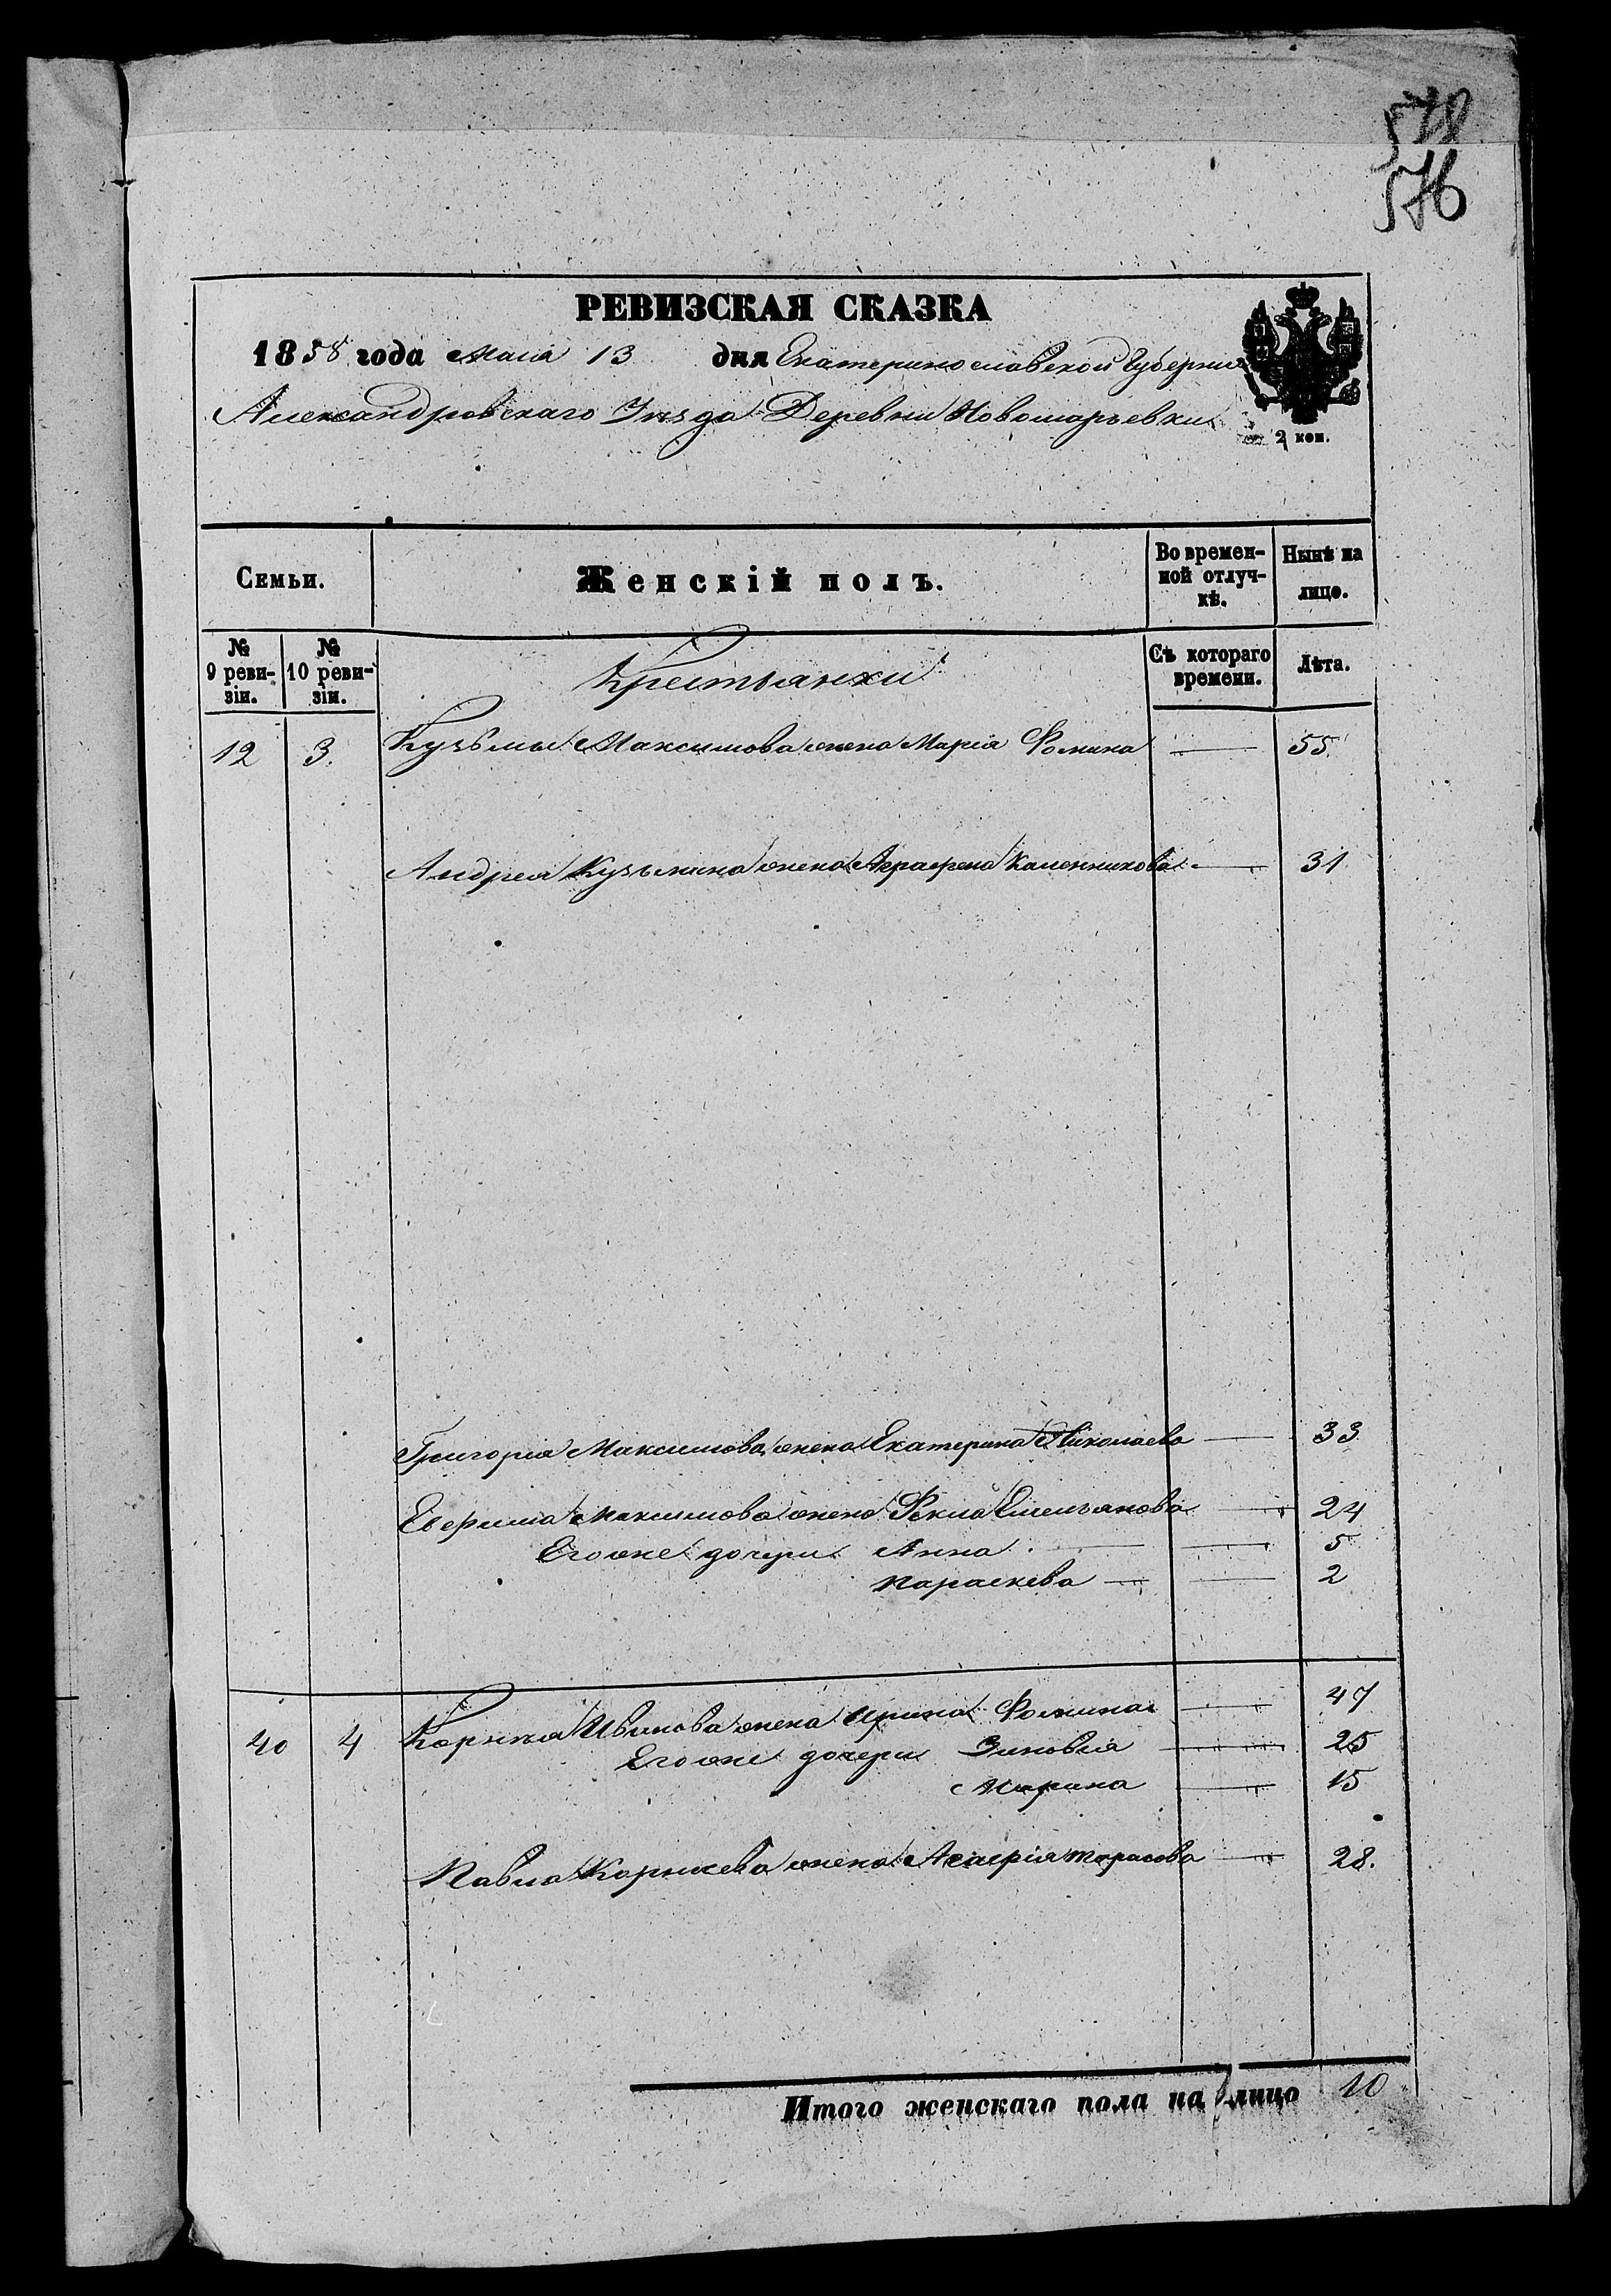 578
576
РЕВИЗСКАЯ СКАЗКА
1858 года Мая 13 дня Екатеринославской Губернии
Александровскаго Уѣзда Деревни Новомарьевки
2 коп.
Семьи. Женскій полъ. Во времен- Нынѣ на
ной отлуч- лицо.
кѣ.
№ № Съ котораго Лѣта.
9 реви- 10 реви- времени.
зіи. зіи.
Крестьянки
12 3. Кузьмы Максимова жена Марія Фомина — 55.
Андрея Кузьмина жена Аграфена Каленникова — 31
Григорія Максимова жена Екатерина Николаева — 33
Ефрима Максимова жена Фекла Емельянова — 24
Его же дочери Анна — — 5
Параскева — — 2
40 4 Корнея Иванова жена Ирина Фомина — 47
Его же дочери Зиновія — 25
Марина — 15
Павла Корнеева жена Агафія Тарасова — 28.
Итого женскаго пола на лицо 10